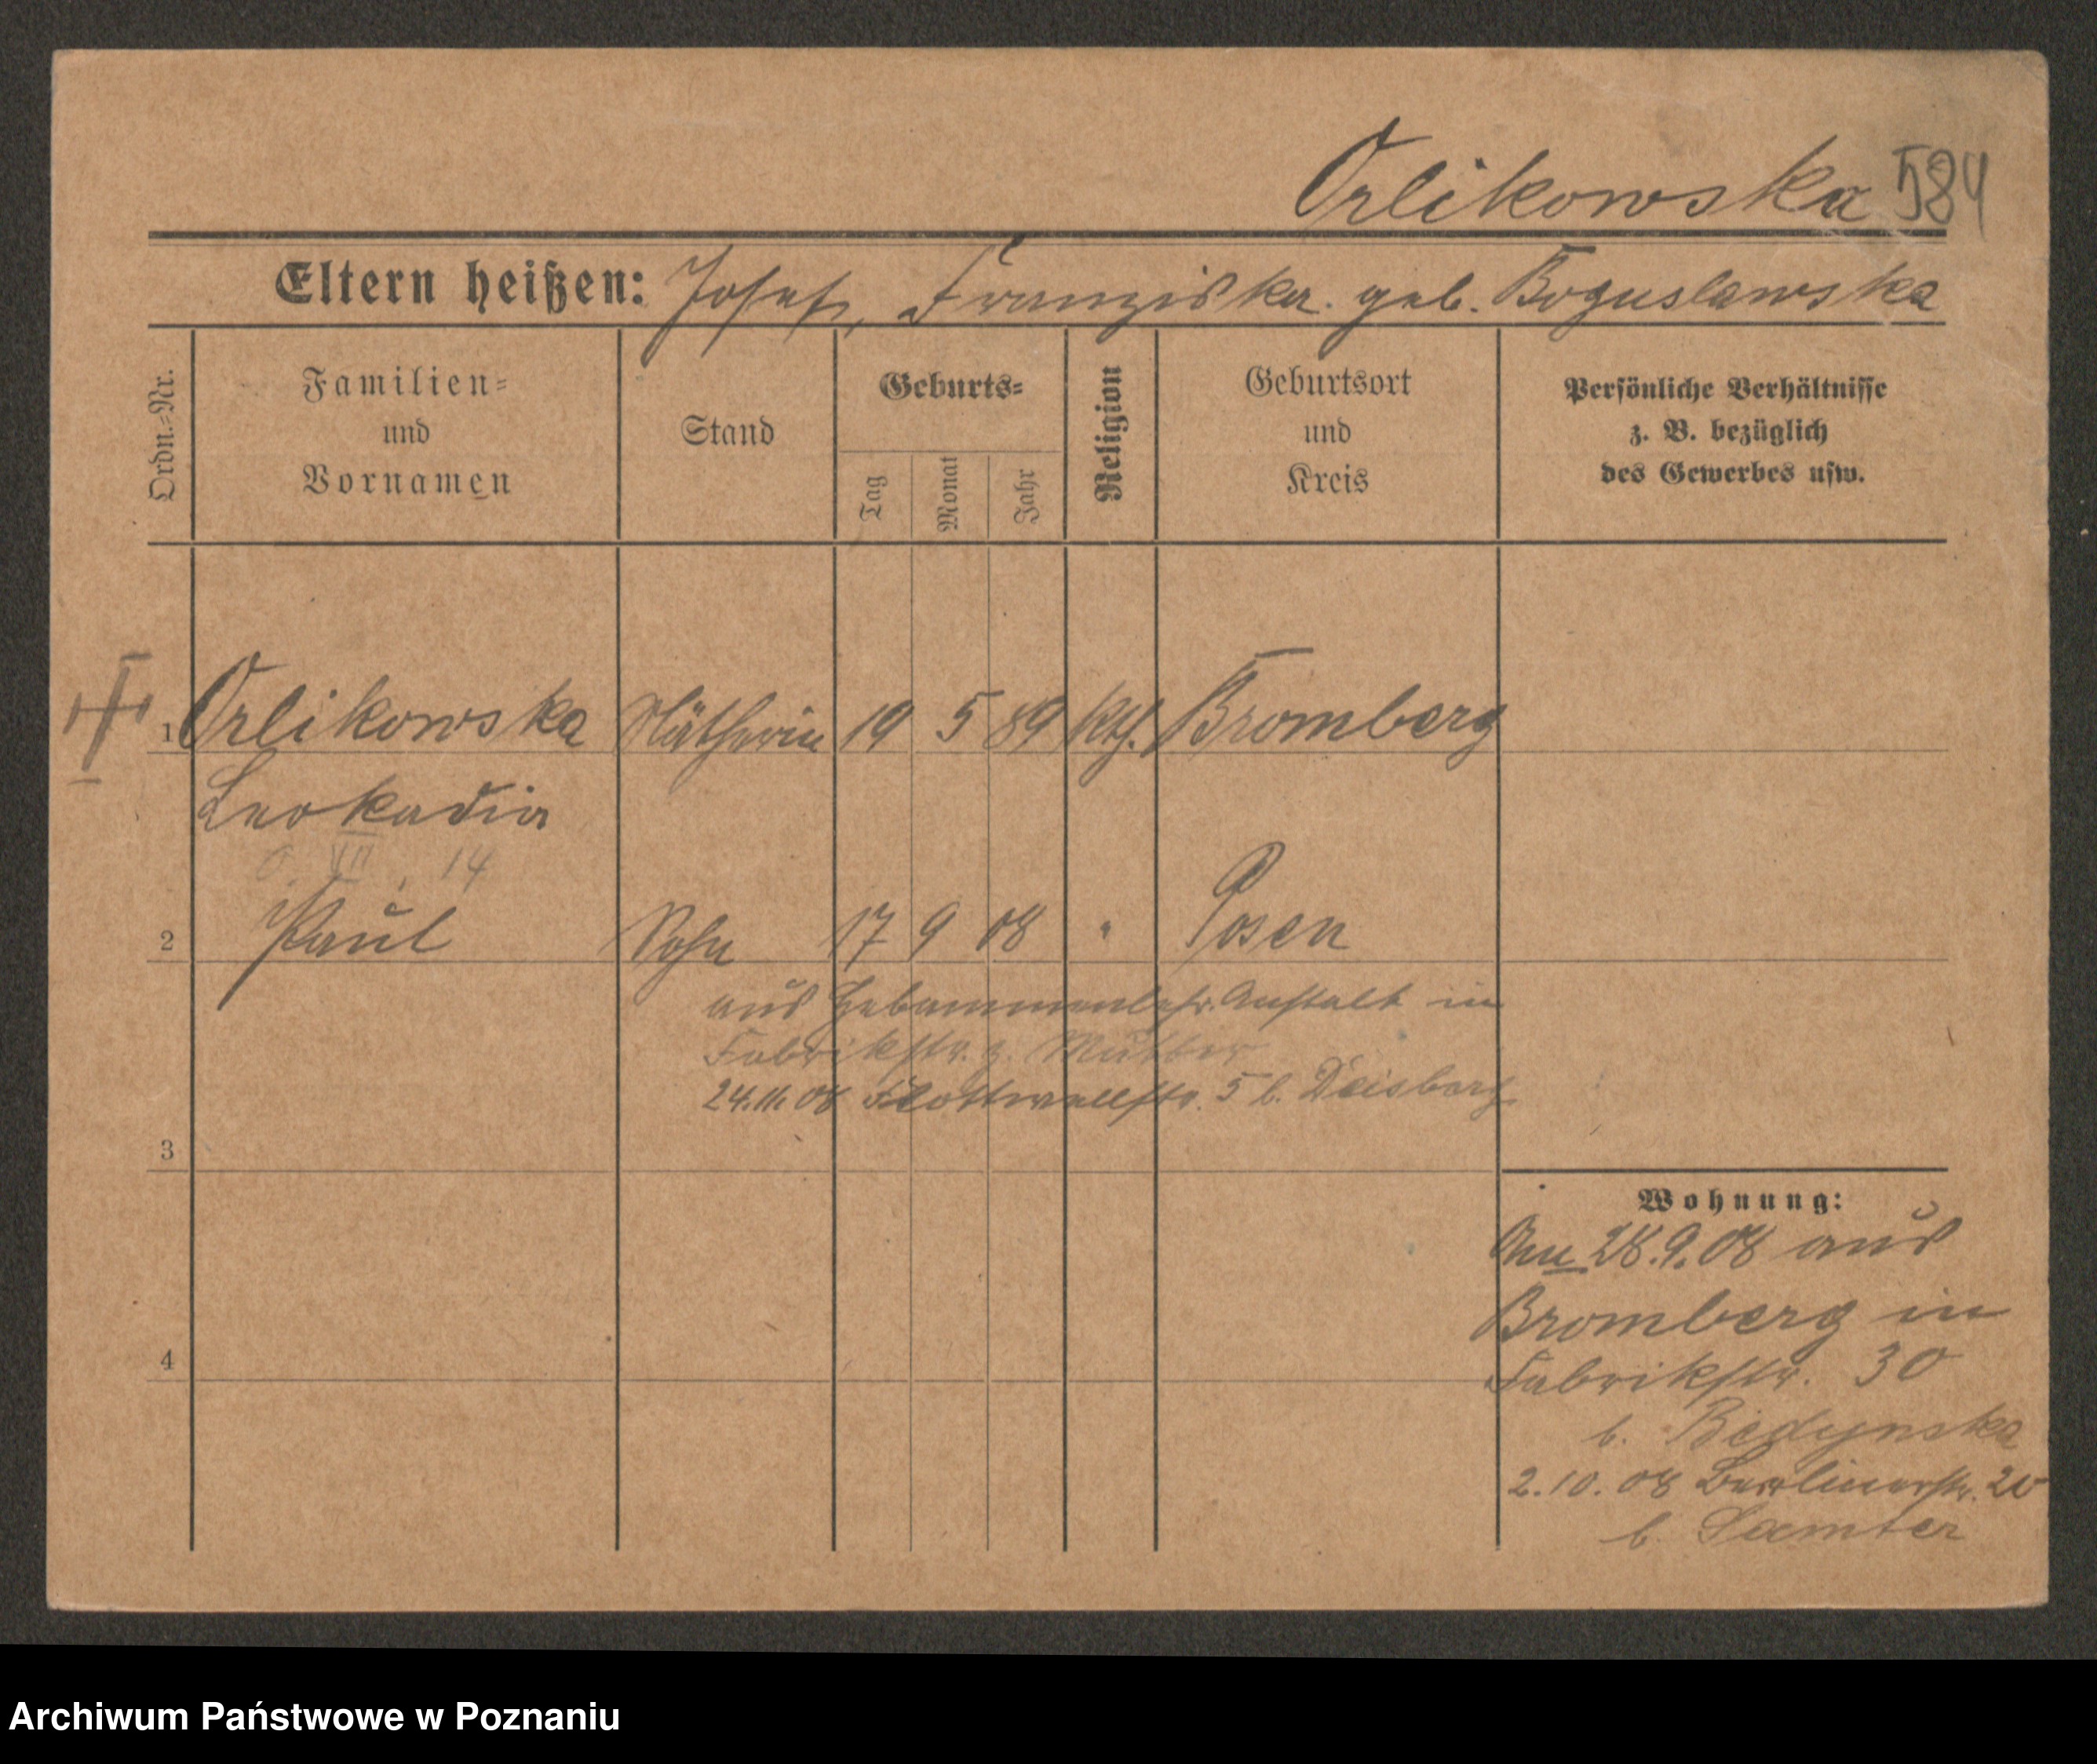 Orlikowska 584
Eltern heißen: Josef, Franziska geb. Boguslawska
Ordn.=Nr.
Familien=
und
Vornamen
Stand
Geburts=
Tag
Monat
Jahr
Religion
Geburtsort
und
Kreis
Persönliche Verhältnisse
z. B. bezüglich
des Gewerbes usw.
1 Orlikowska Nätherin 19 5 89 kth. Bromberg
Leokadia
VII 14
2 Paul Sohn 17 9 08 " Posen
aus Hebammenlehr. Anstalt in
Fabrikstr. z. Mutter
24.11.08 Flottwellstr. 5 b.
3
4
Wohnung:
28.9.08 aus
Bromberg in
Fabrikstr. 30
b.
2.10.08 Berlinerstr. 20
b. Samter
Archiwum Państwowe w Poznaniu